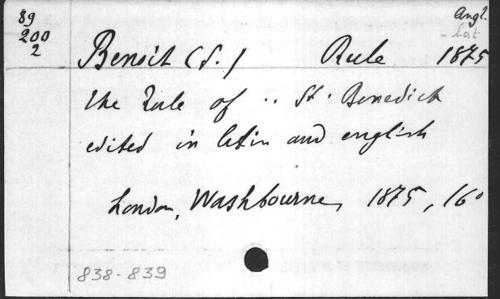 89
200
2
Angl.
- Lat
Benoit (S.) Rule 1875
the Rule of .. St. Benedict
edited in latin and english
London, Washbourne, 1875, 16°
838-839